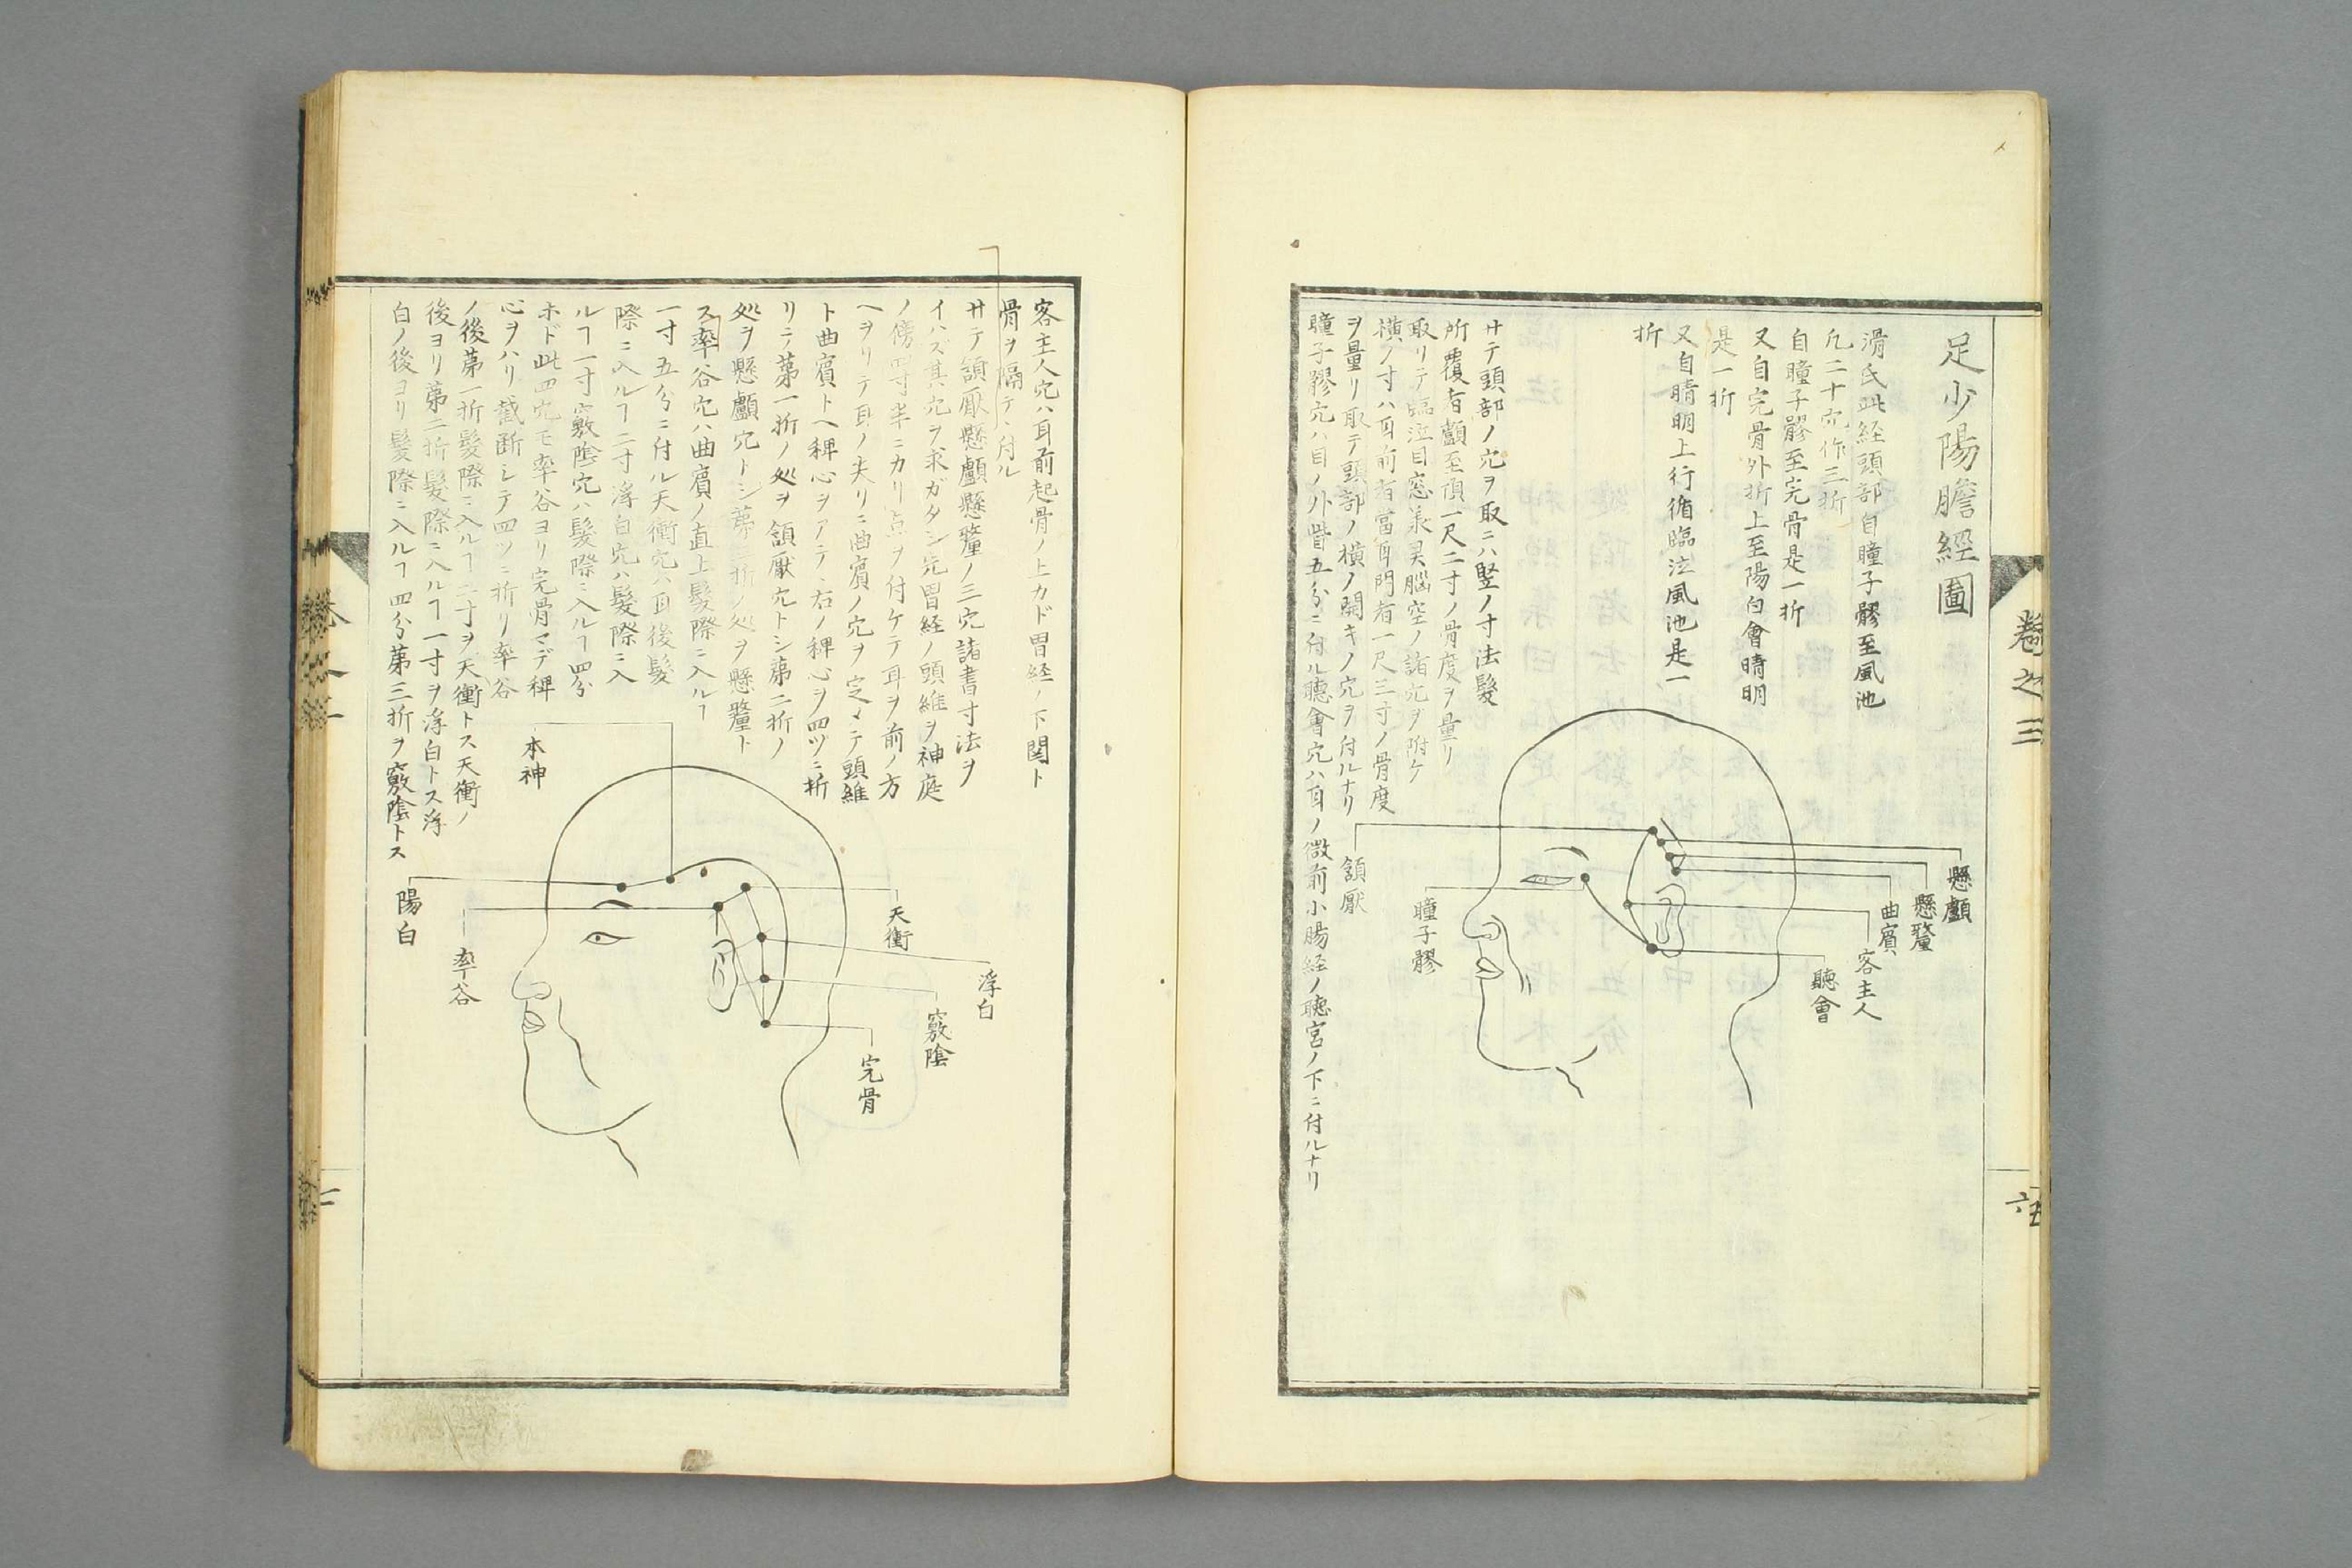 足少陽膽經圖
滑氏此経頭部自瞳子髎至風池
凡二十穴作三折
自瞳子髎至完骨是一折
又自完骨外折上至陽白會睛明
是一折
又自睛明上行循臨泣風池是一
折
サテ頭部ノ穴ヲ取ニハ竪ノ寸法髮
所覆者顱至項一尺二寸ノ骨度ヲ量リ
取リテ臨泣目窓承灵腦空ノ諸穴ヲ附ケ
横ノ寸ハ耳前者當耳門者一尺三寸ノ骨度
ヲ量リ取テ頭部ノ横ノ開キノ穴ヲ付ルナリ
瞳子髎穴ハ目ノ外眥五分ニ付ル聽會穴ハ耳ノ微前小腸経ノ聽宮ノ下ニ付ルナリ
懸顱
懸釐
曲鬢
客主人
聽會
瞳子髎
頷厭
卷之三
客主人穴ハ耳前起骨ノ上カド胃経ノ下関ト
骨ヲ隔テヽ付ル
サテ頷厭懸顱懸釐ノ三穴諸書寸法ヲ
イハズ其穴ヲ求ガタシ先胃経ノ頭維ヲ神庭
ノ傍四寸半ニカリニ点ヲ付ケテ耳ヲ前ノ方
ヘヲリテ耳ノ尖リニ曲鬢ノ穴ヲ定メテ頭維
ト曲鬢トヘ稗心ヲアテヽ右ノ稗心ヲ四ツニ折
リニテ第一折ノ処ヲ頷厭穴トシ第二折ノ
処ヲ懸顱穴トシ第三折ノ処ヲ懸釐ト
ス率谷穴ハ曲鬢ノ直上髮際ニ入ルヿ
一寸五分ニ付ル天衝穴ハ耳後髮
際ニ入ルヿ二寸浮白穴ハ髮際ニ入
ルヿ一寸竅陰穴ハ髮際ニ入ルヿ四分
ホド此四穴モ率谷ヨリ完骨マデ稗
心ヲハリ截断シテ四ツニ折リ率谷
ノ後第一折髮際ニ入ルヿ二寸ヲ天衝トス天衝ノ
後ヨリ第二折髮際ニ入ルヿ一寸ヲ浮白トス浮
白ノ後ヨリ髮際ニ入ルヿ四分第三折ヲ竅陰トス
本神
天衝
浮白
竅陰
完骨
率谷
陽白